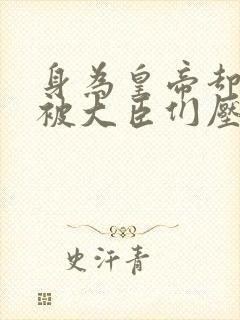 身為皇帝却
被大臣们壓
史汗青